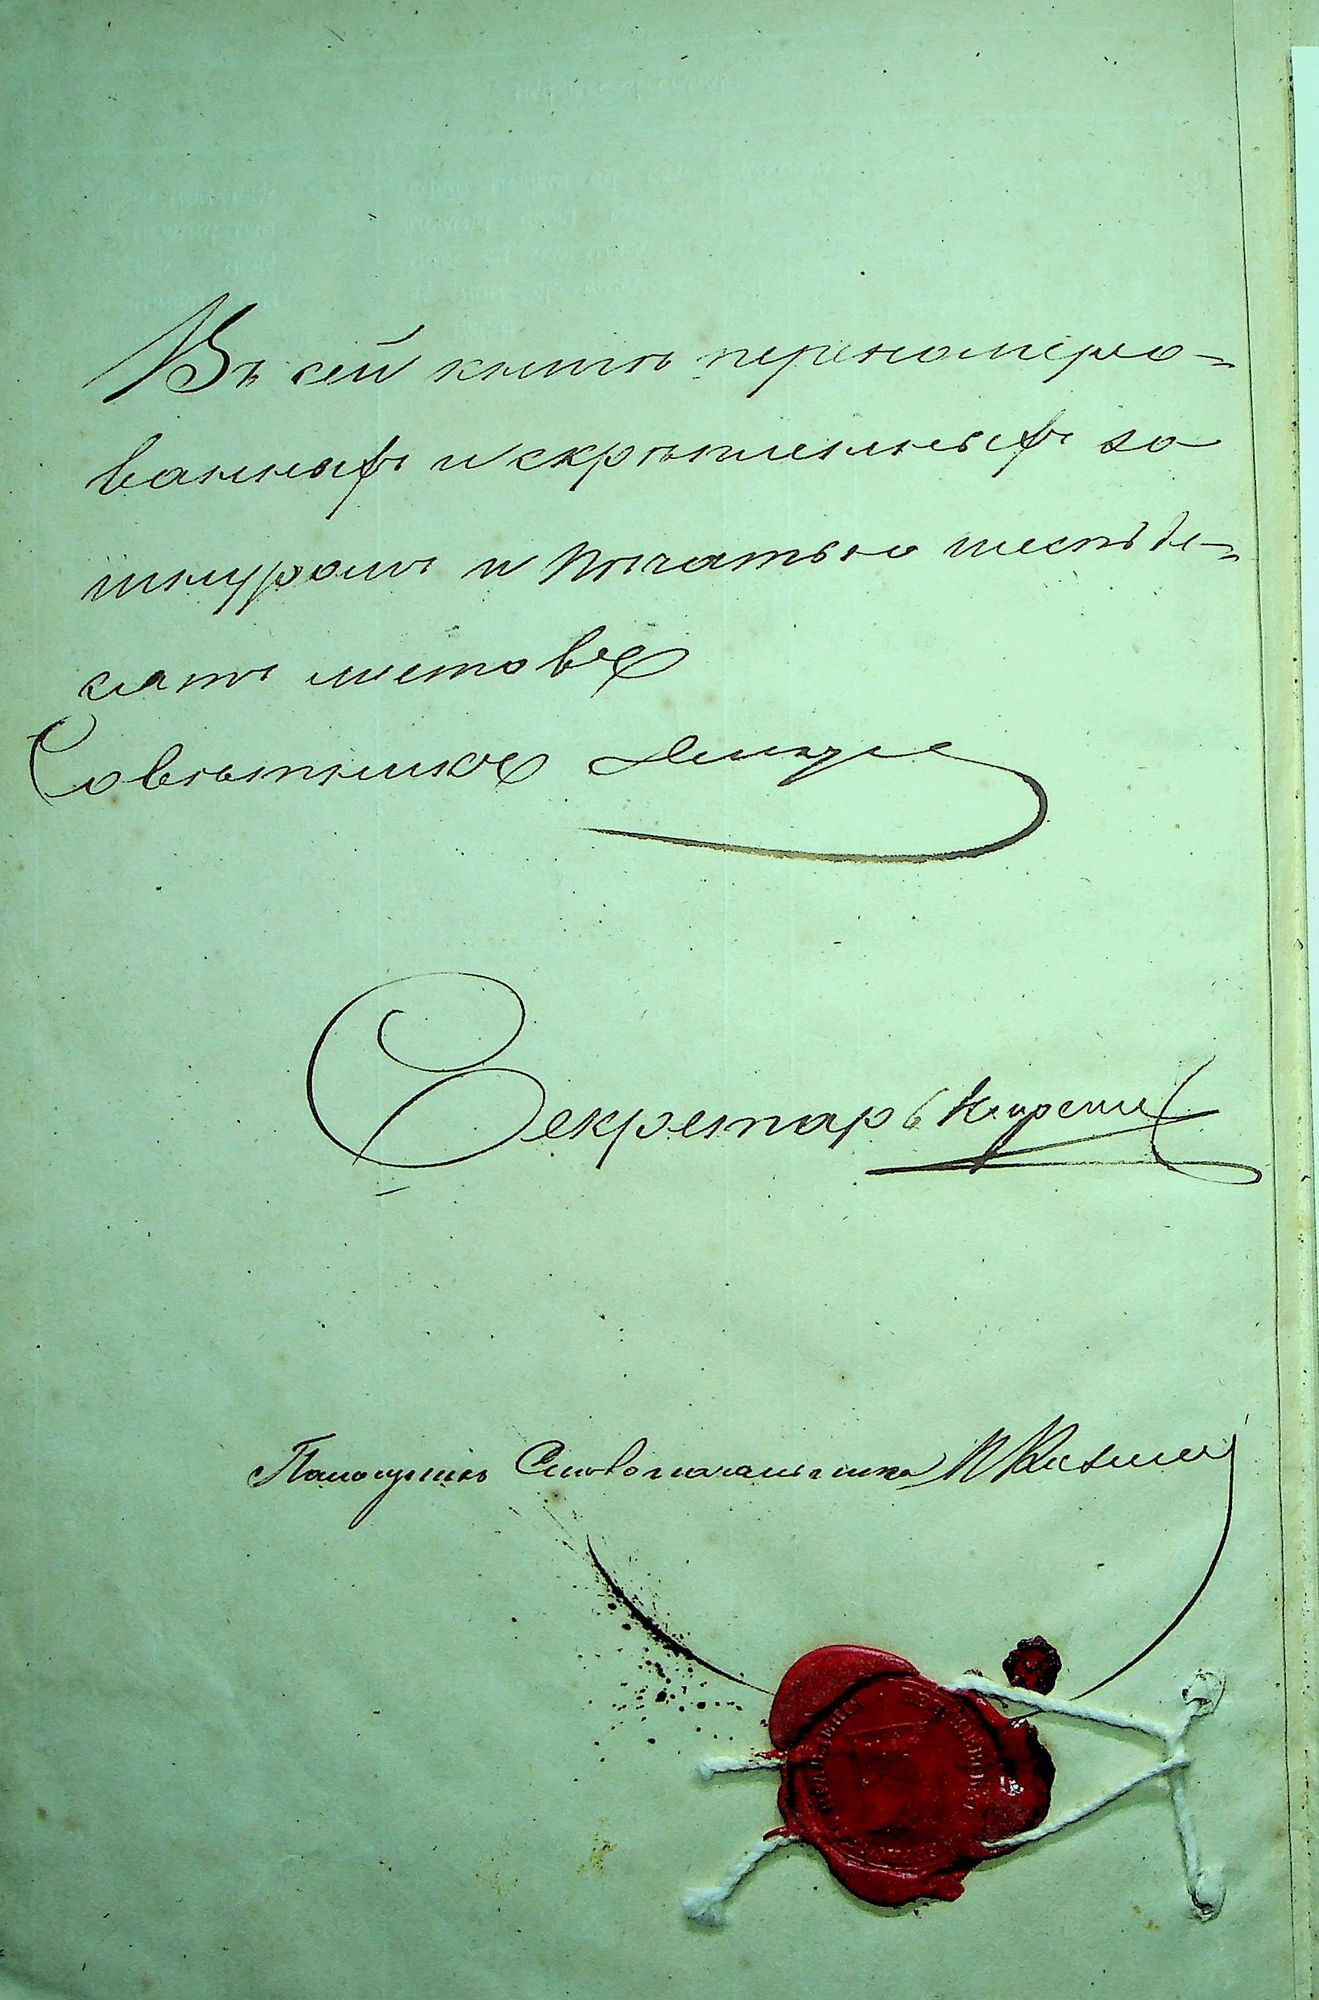 Въ сей книгѣ перенумеро-
ванныхъ и скрѣпленныхъ за
шнуромъ и печатью шестьде-
сятъ листовъ
Совѣтникъ
Секретарь
Помощникъ Столоначальника